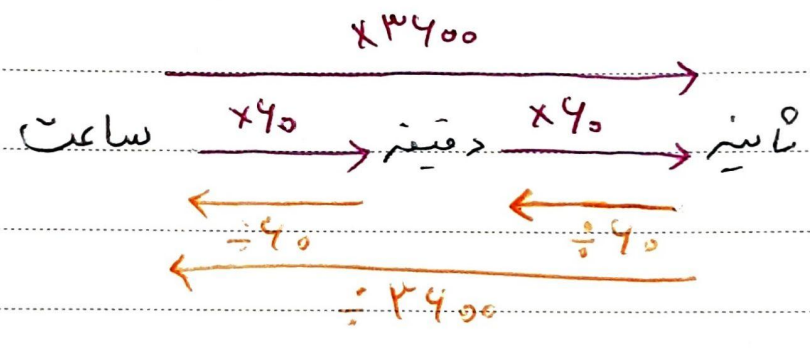 ×۳۶۰۰
ساعت ×۶۰ دقیقه ×۶۰ ثانیه
÷۶۰ ÷۶۰
÷۳۶۰۰